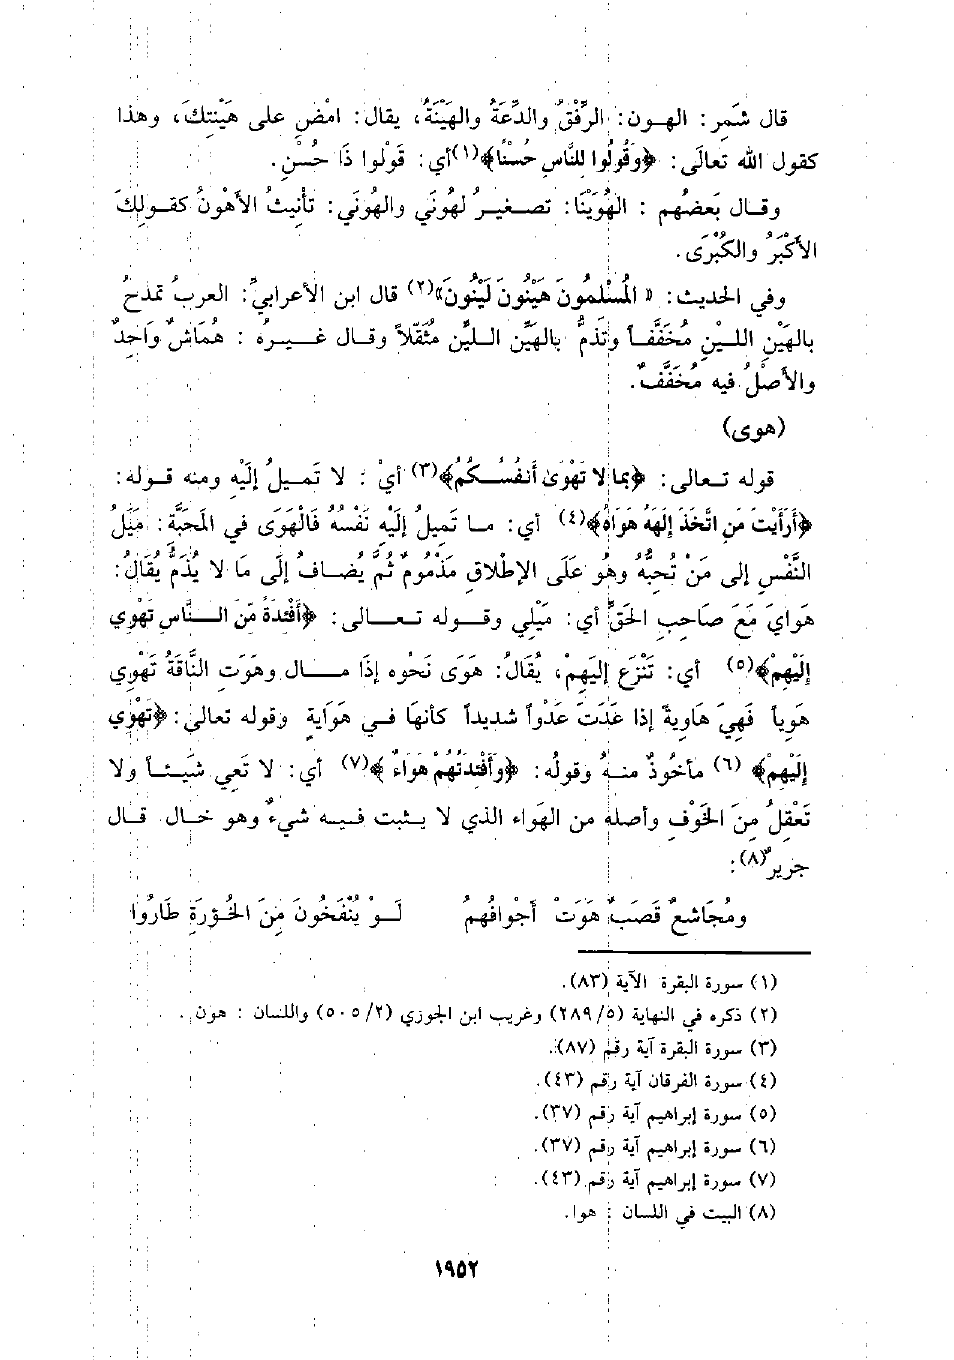 قال شَمِر: الهون: الرِّفْقُ والدِّعَةُ والهَيْنَةُ، يقال: امْضِ على هَيْنَتِكَ، وهذا
كقول الله تعالَى: ﴿وَقُولُوا لِلنَّاسِ حُسْنًا﴾(١) أي: قَوْلوا ذَا حُسْنٍ.
وقال بَعضُهم : الهُوَيْنَا: تصغيرُ لهُونَي والهُونَي: تأنيثُ الأَهْونُ كقولِكَ
الأَكْبَرُ والكُبْرَى.
وفي الحديث: « المُسْلمُونَ هَيْنُونَ لَيْنُونَ»(٢) قال ابن الأعرابيِّ: العربُ تمدحُ
بالهَيْنِ الليْنِ مُخَفَّفاً وتَذُمُّ بالهَيِّن الليِّن مثُقّلاً وقال غيرهُ : هُمَاشٌ وَاحِدٌ
والأَصْلُ فيه مُخَفَّفٌ.
(هوى)
قوله تعالى: ﴿بِمَا لا تَهْوَىٰ أَنفُسُكُمُ﴾(٣) أيْ : لا تَميلُ إلَيْهِ ومنه قوله:
﴿أَرَأَيْتَ مَنِ اتَّخَذَ إِلَهَهُ هَوَاهُ﴾(٤) أي: ما تَميلُ إلَيْهِ نَفْسُهُ فَالْهَوَى في المَحبَّة: مَيْلُ
النَّفْسِ إلى مَنْ تُحبُّهُ وهُو عَلَى الإطْلاقِ مَذْمُومٌ ثُمَّ يضافُ إلَى مَا لا يُذَمُّ يُقَالُ:
هَوايَ مَعَ صَاحبِ الحَقِّ أي: مَيْلِي وقوله تعالى: ﴿أَفْئِدَةً مِّنَ النَّاسِ تَهْوِي
إِلَيْهِمْ﴾(٥) أي: تَنْزِع إليَهِمْ، يُقَالُ: هَوَى نَحْوه إذَا مال وهَوَت النَّاقَةُ تَهْوِي
هَوِياً فَهِيَ هَاوِيةٌ إذا عَدَتَ عَدْواً شديداً كأنهَا في هَوَايةٍ وقوله تعالى: ﴿تَهْوِي
إِلَيْهِمْ﴾ (٦) مأخوُذٌ منهُ وقولُه: ﴿وَأَفْئِدَتُهُمْ هَوَاءٌ ﴾(٧) أي: لا تَعي شَيْئاً ولا
تَعْقِلُ منَ الخَوْفِ وأصله من الهَواء الذي لا يثبت فيه شيءٌ وهو خال قال
جرير(٨):
ومُجَاشعٌ قَصَبٌ هَوَتْ أجْوافُهمُ لَوْ يُنْفَخُونَ مِنَ الخُؤرَةِ طَارُوا
(١) سورة البقرة الآية (٨٣).
(٢) ذكره في النهاية (٢٨٩/٥) وغريب ابن الجوزي (٥٠٥/٢) واللسان : هون .
(٣) سورة البقرة آية رقم (٨٧).
(٤) سورة الفرقان آية رقم (٤٣).
(٥) سورة إبراهيم آية رقم (٣٧).
(٦) سورة إبراهيم آية رقم (٣٧).
(٧) سورة إبراهيم آية رقم (٤٣).
(٨) البيت في اللسان : هوا.
١٩٥٢